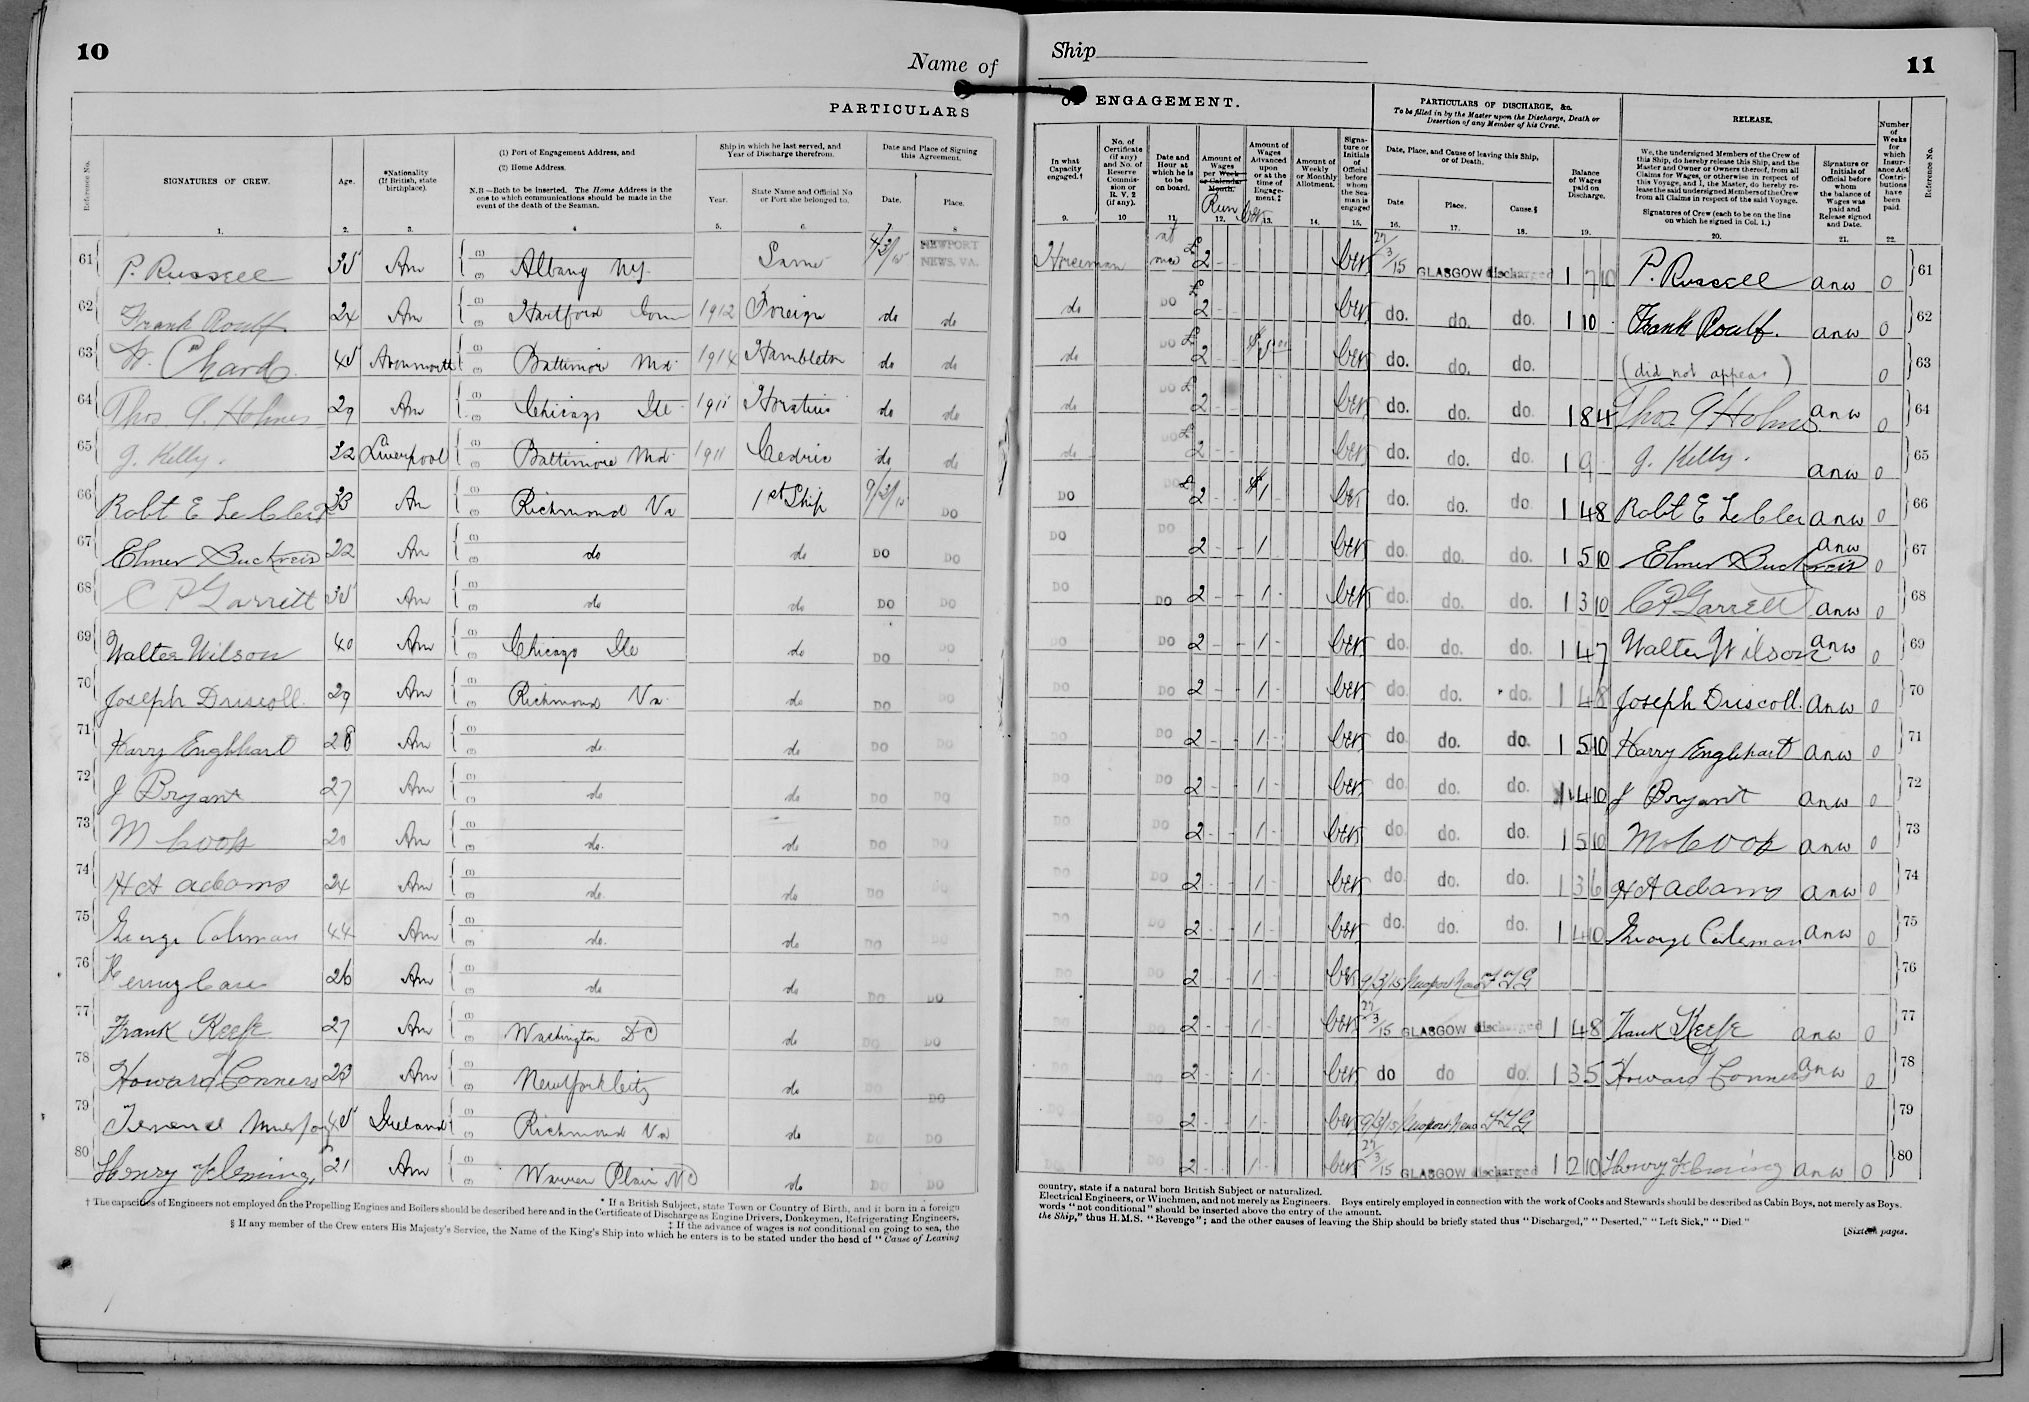 10
Name of
PARTICULARS
Reference No.
SIGNATURES OF CREW.
Age.
*Nationality
(If British, state
birthplace).
(1) Port of Engagement Address, and
(2) Home Address.
N.B—Both to be inserted. The Home Address is the
one to which communications should be made in the
event of the death of the Seaman.
Ship in which he last served, and
Year of Discharge therefrom.
Year.
State Name and Official No
or Port she belonged to.
Date and Place of Signing
this Agreement.
Date.
Place.
1. 2. 3. 4 5. 6. 7 8
61 P. Russell 35 Am Albany NY. Same 4/3/15 NEWPORT NEWS, VA.
62 Frank Roulf 24 Am Hartford Conn 1912 Foreign do do
63 W. Chard 45 Avonmouth Baltimore Md. 1914 Hambleton do do
64 Thos G. Holmes 29 Am Chicago Ill Horatius do do
65 J. Kelly. 32 Liverpool Baltimore Md. 1911 Cedric do do
66 Robt E LeClert 33 Am Richmond Va 1st Ship 9/3/15 DO
67 Elmer 22 Am do do DO DO
68 C P Garrett 35 Am do do DO DO
69 Walter Wilson 40 Am Chicago Ill do DO DO
70 Joseph Driscoll. 29 Am Richmond Va. do DO DO
71 Harry Englehart 28 Am do. do DO DO
72 J Bryant 27 Am do do DO DO
73 M Cook 20 Am do. do DO DO
74 H A adams 24 Am do. do DO DO
75 George Coleman 44 Am do. do DO DO
76 Henry Case 26 Am do do DO DO
77 Frank Keefe 27 Am Washington DC do DO DO
78 Howard Conners 23 Am New York City do DO
79 Terence 45 Ireland Richmond Va do DO DO
80 Henry Fleming. 21 Am Warren Plain NC do DO DO
† The capacities of Engineers not employed on the Propelling Engines and Boilers should be described here and in the Certificate of Discharge as Engine Drivers, Donkeymen, Refrigerating Engineers,
* If a British Subject, state Town or Country of Birth, and if born in a foreign
‡ If the advance of wages is not conditional on going to sea, the
§ If any member of the Crew enters His Majesty's Service, the Name of the King's Ship into which he enters is to be stated under the head of "Cause of Leaving
Ship
11
OF ENGAGEMENT.
PARTICULARS OF DISCHARGE, &c.
To be filled in by the Master upon the Discharge, Death or
Desertion of any Member of his Crew.
RELEASE.
Number
of
Weeks
for
which
Insur-
ance Act
Contri-
butions
have
been
paid.
Reference No.
In what
Capacity
engaged.†
No. of
Certificate
(if any)
and No. of
Reserve
Commis-
sion or
R. V. 2
(if any).
Date and
Hour at
which he is
to be
on board.
Amount of
Wages
per Week
or Calendar
Month.
Run
Amount of
Wages
Advanced
upon
or at the
time of
Engage-
ment.‡
Amount of
Weekly
or Monthly
Allotment.
Signa-
ture or
Initials
of
Official
before
whom
the Sea-
man is
engaged
Date, Place, and Cause of leaving this Ship,
or of Death.
Date
Place.
Cause.§
Balance
of Wages
paid on
Discharge.
We, the undersigned Members of the Crew of
this Ship, do hereby release this Ship, and the
Master and Owner or Owners thereof, from all
Claims for Wages, or otherwise in respect of
this Voyage, and I, the Master, do hereby re-
lease the said undersigned Members of the Crew
from all Claims in respect of the said Voyage.
Signatures of Crew (each to be on the line
on which he signed in Col. 1.)
Signature or
Initials of
Official before
whom
the balance of
Wages was
paid and
Release signed
and Date.
9. 10 11. 12. 13. 14. 15. 16. 17. 18. 19. 20. 21. 22.
Horseman at once £2 - - 27/3/15 GLASGOW discharged 1 7 10 P. Russell anw 0 61
do DO £2 - - do. do. do. 1 10 Frank Roulf. anw 0 62
do DO £2 - - do. do. do. (did not appear) 0 63
do DO £2 - - do. do. do. 1 8 4 Thos G Holmes anw 0 64
do DO £2 - - do. do. do. 1 9 J. Kelly. anw 0 65
DO DO £2 - - $1 - do. do. do 1 4 8 Robt E LeCler anw 0 66
DO DO 2 - - 1 - do. do. do. 1 5 10 Elmer anw 0 67
DO DO 2 - - 1 - do. do. do. 1 3 10 CP Garrett anw 0 68
DO DO 2 - - 1 - do. do. do. 1 4 7 Walter Wilson anw 0 69
DO DO 2 - - 1 - do. do. do. 1 4 8 Joseph Driscoll. anw 0 70
DO DO 2 - - 1 - do. do. do. 1 5 10 Harry Englehart anw 0 71
DO DO 2 - - 1 - do. do. do. 1 4 10 J Bryant anw 0 72
DO DO 2 - - 1 - do. do. do. 1 5 10 M Cook anw 0 73
DO DO 2 - - 1 - do. do. do. 1 3 6 H A adams anw 0 74
DO DO 2 - - 1 - do. do. do. 1 4 0 George Coleman anw 0 75
DO DO 2 - - 1 - 9/3/15 Newport News 76
DO DO 2 - - 1 - 27/3/15 GLASGOW discharged 1 4 8 Frank Keefe anw 0 77
DO DO 2 - - 1 - do do do. 1 3 5 Howard Conners anw 0 78
DO DO 2 - - 1 - 9/3/15 Newport News 79
DO DO 2 - - 1 - 27/3/15 GLASGOW discharged 1 2 10 Henry Fleming anw 0 80
country, state if a natural born British Subject or naturalized.
Electrical Engineers, or Winchmen, and not merely as Engineers. Boys entirely employed in connection with the work of Cooks and Stewards should be described as Cabin Boys, not merely as Boys.
words "not conditional" should be inserted above the entry of the amount.
the Ship," thus H.M.S. "Revenge"; and the other causes of leaving the Ship should be briefly stated thus "Discharged," "Deserted," "Left Sick," "Died."
[Sixteen pages.